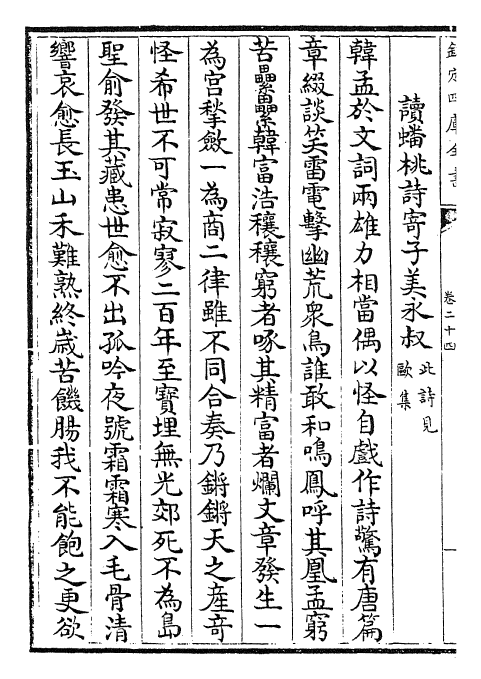 欽定四庫全書
卷二十四
讀蟠桃詩寄子美永叔
此詩見
歐集
韓孟於文詞兩雄力相當偶以怪自戲作詩驚有唐篇
章綴談笑雷電擊幽荒衆鳥誰敢和鳴鳳呼其凰孟窮
苦纍纍韓富浩穰穰窮者啄其精富者爛文章發生一
為宮揫斂一為商二律雖不同合奏乃鏘鏘天之產竒
怪希世不可常寂寥二百年至寶埋無光郊死不為島
聖俞發其藏患世愈不出孤吟夜號霜霜寒入毛骨清
響哀愈長玉山禾難熟終嵗苦饑腸我不能飽之更欲